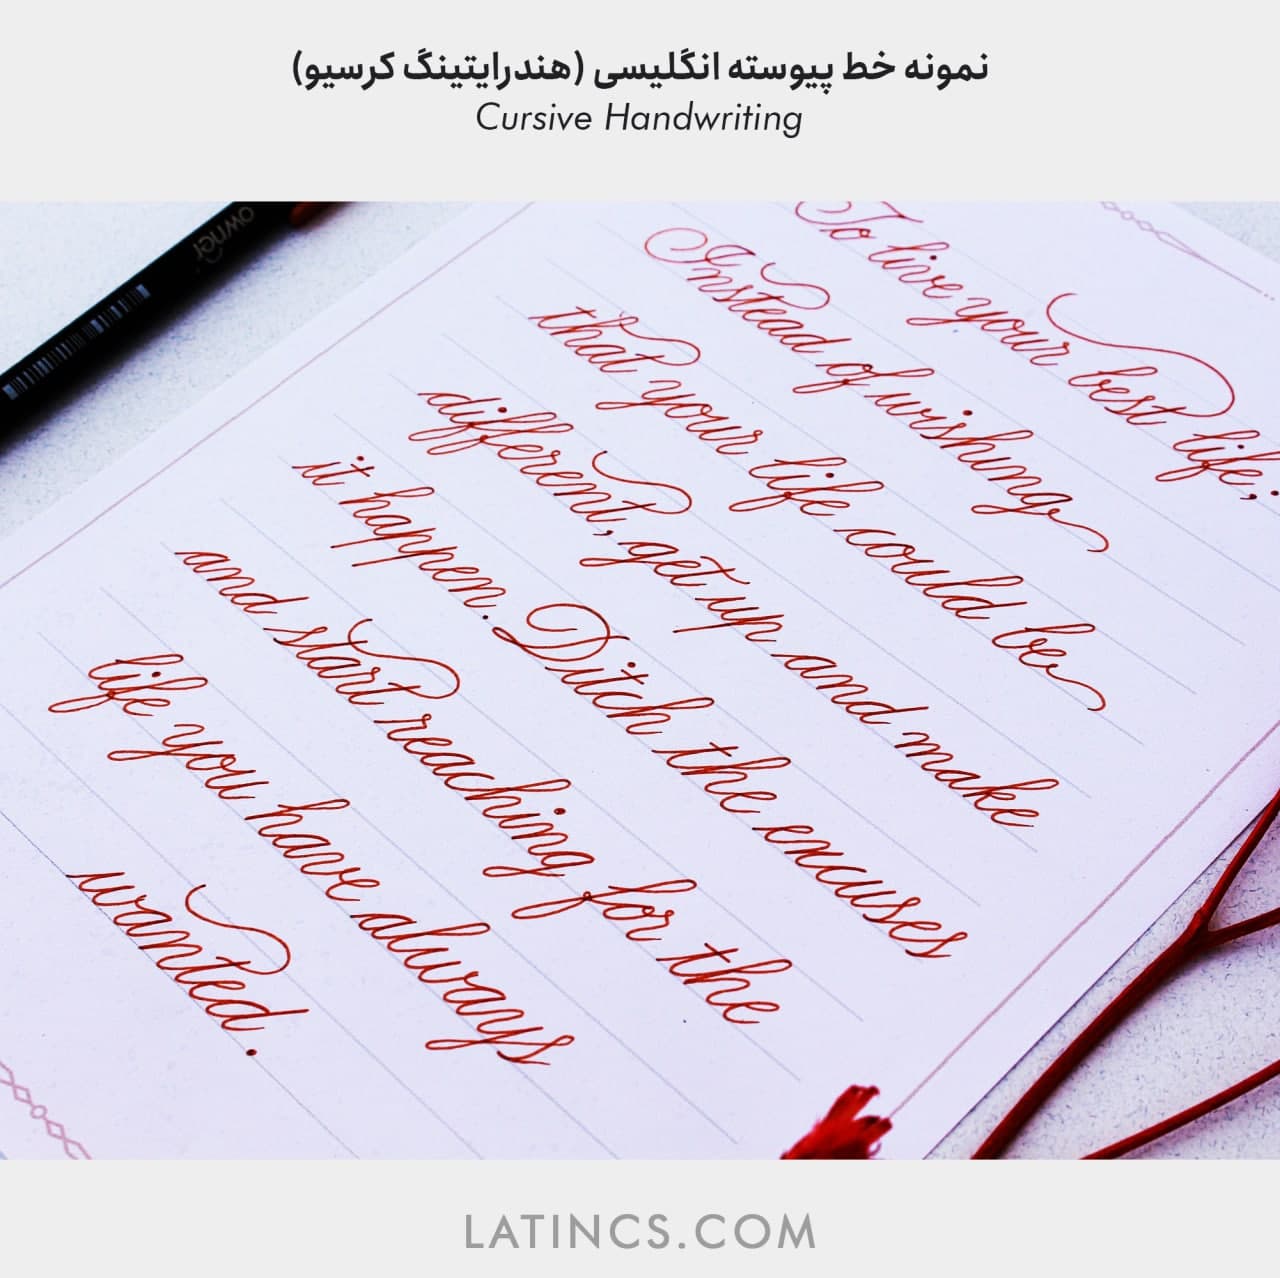 نمونه خط پیوسته انگلیسی (هندرایتینگ کرسیو)
Cursive Handwriting
owner
To live your best life,:
Instead of wishing
that your life could be
different, get up and make
it happen. Ditch the excuses
and start reaching for the
life you have always
wanted.
LATINCS.COM